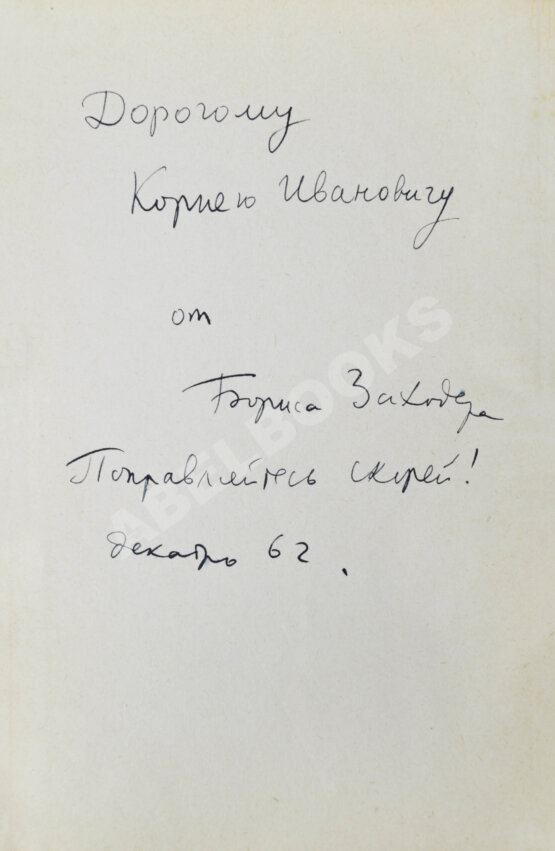 Дорогому
Корнею Ивановичу
от
Бориса Заходера
Поправляйтесь скорей!
декабрь 62.
ABELBOOKS